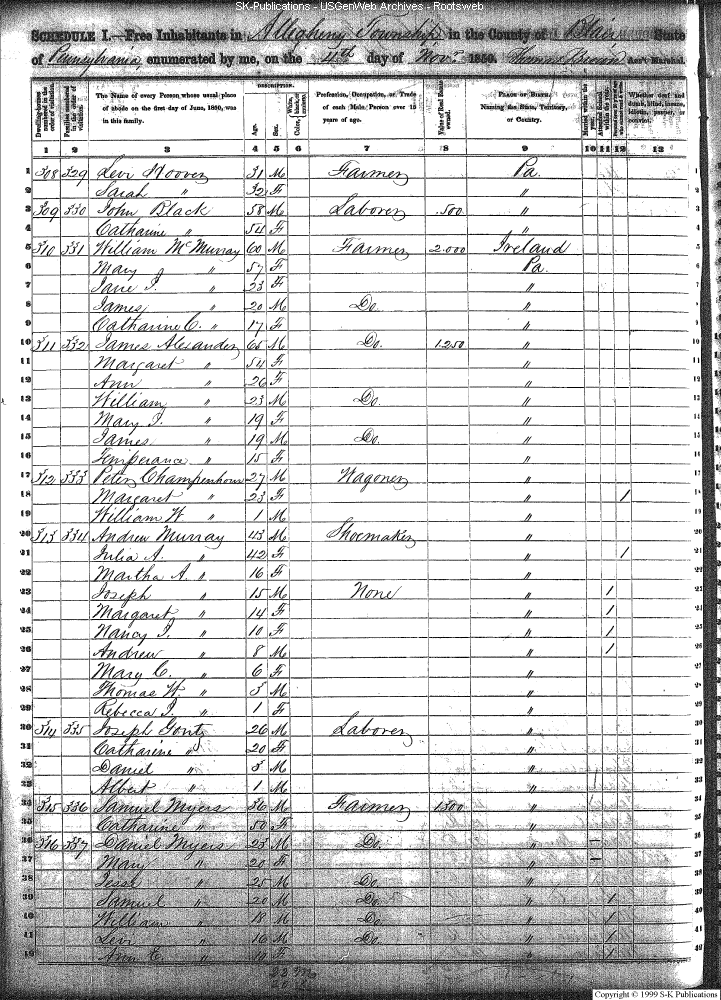 SK-Publications - USGenWeb Archives - Rootsweb
SCHEDULE I.—Free Inhabitants in Allegheny Township in the County of Blair State
of Pennsylvania, enumerated by me, on the 4th day of Novr 1850. Thomas Brown Ass't Marshal.
DESCRIPTION.
Dwelling-houses numbered in the order of visitation. Families numbered in the order of visitation. The Name of every Person whose usual place of abode on the first day of June, 1850, was in this family. Age. Sex. Color, Profession, Occupation, or Trade of each Male Person over 15 years of age. Value of Real Estate owned. Place of Birth. Naming the State, Territory, or Country. Married within the year. Attended School within the year. Whether deaf and dumb, blind, insane, idiotic, pauper, or convict.
1 2 3 4 5 6 7 8 9 10 11 12 13
1 308 329 Levi Hoover 31 M Farmer Pa. 1
2 Sarah " 32 F " 2
3 309 330 John Black 58 M Laborer 500 " 3
4 Catharine " 54 F " 4
5 310 331 William McMurray 60 M Farmer 2.000 Ireland 5
6 Mary " 57 F Pa. 6
7 Jane I. " 23 F " 7
8 James " 20 M Do. " 8
9 Catharine C. " 17 F " 9
10 311 332 James Alexander 65 M Do. 1250 " 10
11 Margaret " 54 F " 11
12 Ann " 26 F " 12
13 William " 23 M Do. " 13
14 Mary I. " 19 F " 14
15 James " 19 M Do. " 15
16 Temperance " 15 F " 16
17 312 333 Peter Champenhour 27 M Wagoner " 17
18 Margaret " 23 F " 1 18
19 William W. " 1 M " 19
20 313 334 Andrew Murray 43 M Shoemaker " 20
21 Julia A. " 42 F " 1 21
22 Martha A. " 16 F " 22
23 Joseph " 15 M None " 1 23
24 Margaret " 14 F " 1 24
25 Nancy I. " 10 F " 1 25
26 Andrew " 8 M " 1 26
27 Mary C. " 6 F " 27
28 Thomas W. " 3 M " 28
29 Rebecca I. " 1 F " 29
30 314 335 Joseph Gontz 26 M Laborer " 30
31 Catharine " 20 F " 31
32 Daniel " 3 M " 32
33 Albert " 1 M " 33
34 315 336 Samuel Myers 56 M Farmer 1300 " 34
35 Catharine " 50 F " 35
36 316 337 Daniel Myers 23 M Do. " 36
37 Mary " 20 F " 37
38 Jesse " 25 M Do. " 38
39 Samuel " 20 M Do. " 1 39
40 William " 18 M Do. " 1 40
41 Levi " 16 M Do. " 1 41
42 Ann E. " F " 1 42
Copyright © 1999 S-K Publications